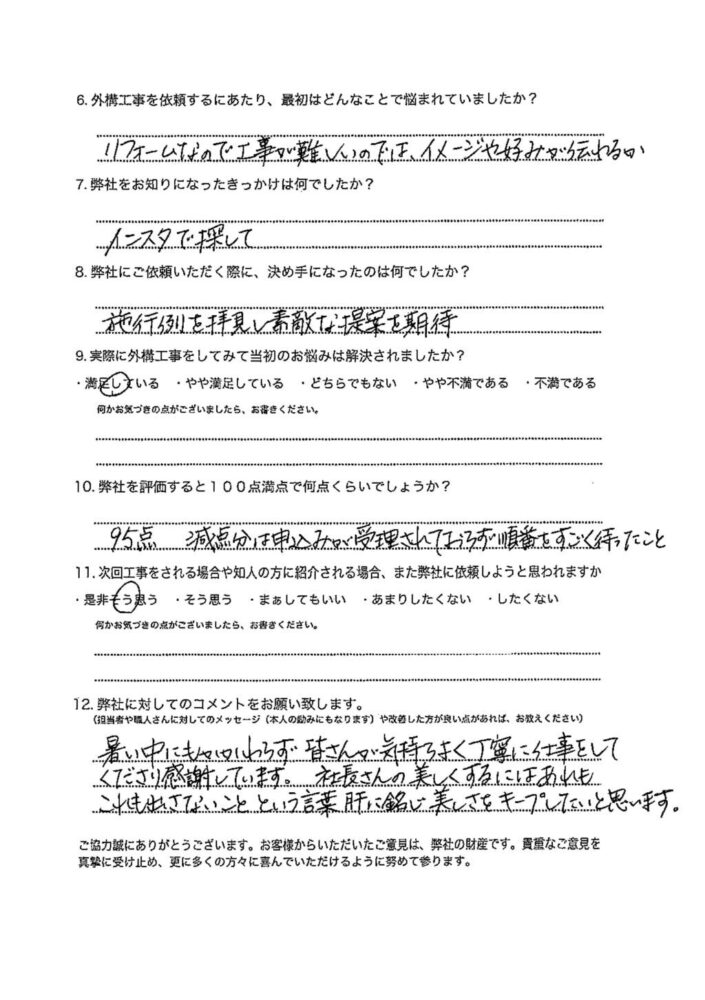 6. 外構工事を依頼するにあたり、最初はどんなことで悩まれていましたか？
リフォームなので工事が難しいのでは、イメージや好みが伝れるか
7. 弊社をお知りになったきっかけは何でしたか？
インスタで探して
8. 弊社にご依頼いただく際に、決め手になったのは何でしたか？
施行例を拝見し素敵な提案を期待
9. 実際に外構工事をしてみて当初のお悩みは解決されましたか？
・満足している ・やや満足している ・どちらでもない ・やや不満である ・不満である
何かお気づきの点がございましたら、お書きください。
10. 弊社を評価すると１００点満点で何点くらいでしょうか？
95点 減点分は申込みが受理されておらず順番をすごく待ったこと
11. 次回工事をされる場合や知人の方に紹介される場合、また弊社に依頼しようと思われますか
・是非そう思う ・そう思う ・まぁしてもいい ・あまりしたくない ・したくない
何かお気づきの点がございましたら、お書きください。
12. 弊社に対してのコメントをお願い致します。
（担当者や職人さんに対してのメッセージ（本人の励みにもなります）や改善した方が良い点があれば、お教えください）
暑い中にもかかわらず 皆さんが気持ちよく丁寧に仕事をして
くださり感謝しています。 社長さんの美しくするにはあれも
これも出さないこと という言葉 肝に銘じ 美しさをキープしたいと思います。
ご協力誠にありがとうございます。お客様からいただいたご意見は、弊社の財産です。貴重なご意見を
真摯に受け止め、更に多くの方々に喜んでいただけるように努めて参ります。